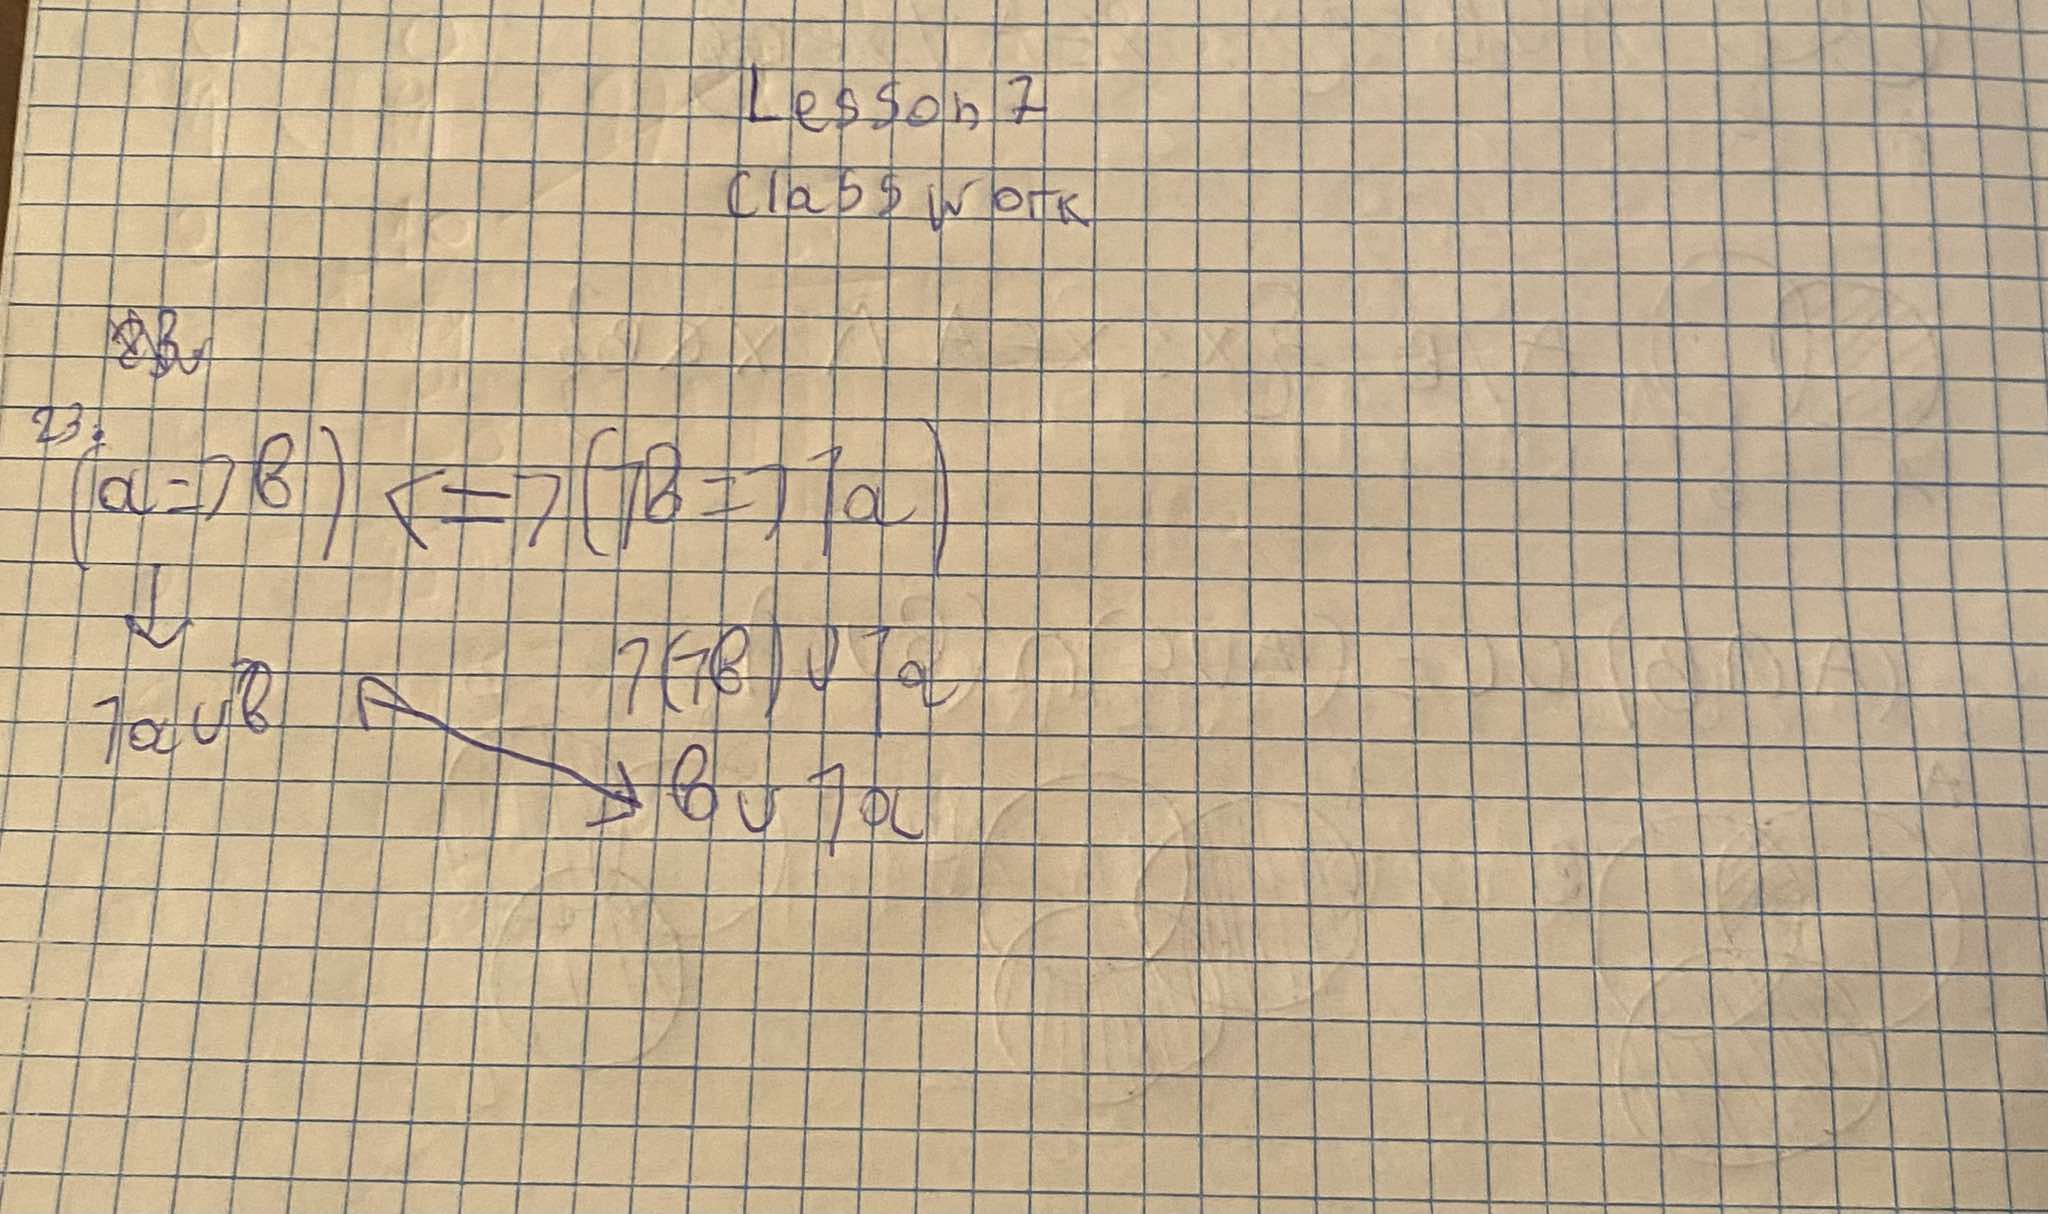 Lesson 7
Classwork
23.
(a => b) <=> (¬b => ¬a)
↓
¬(¬b) ∨ ¬a
¬a ∨ b
b ∨ ¬a